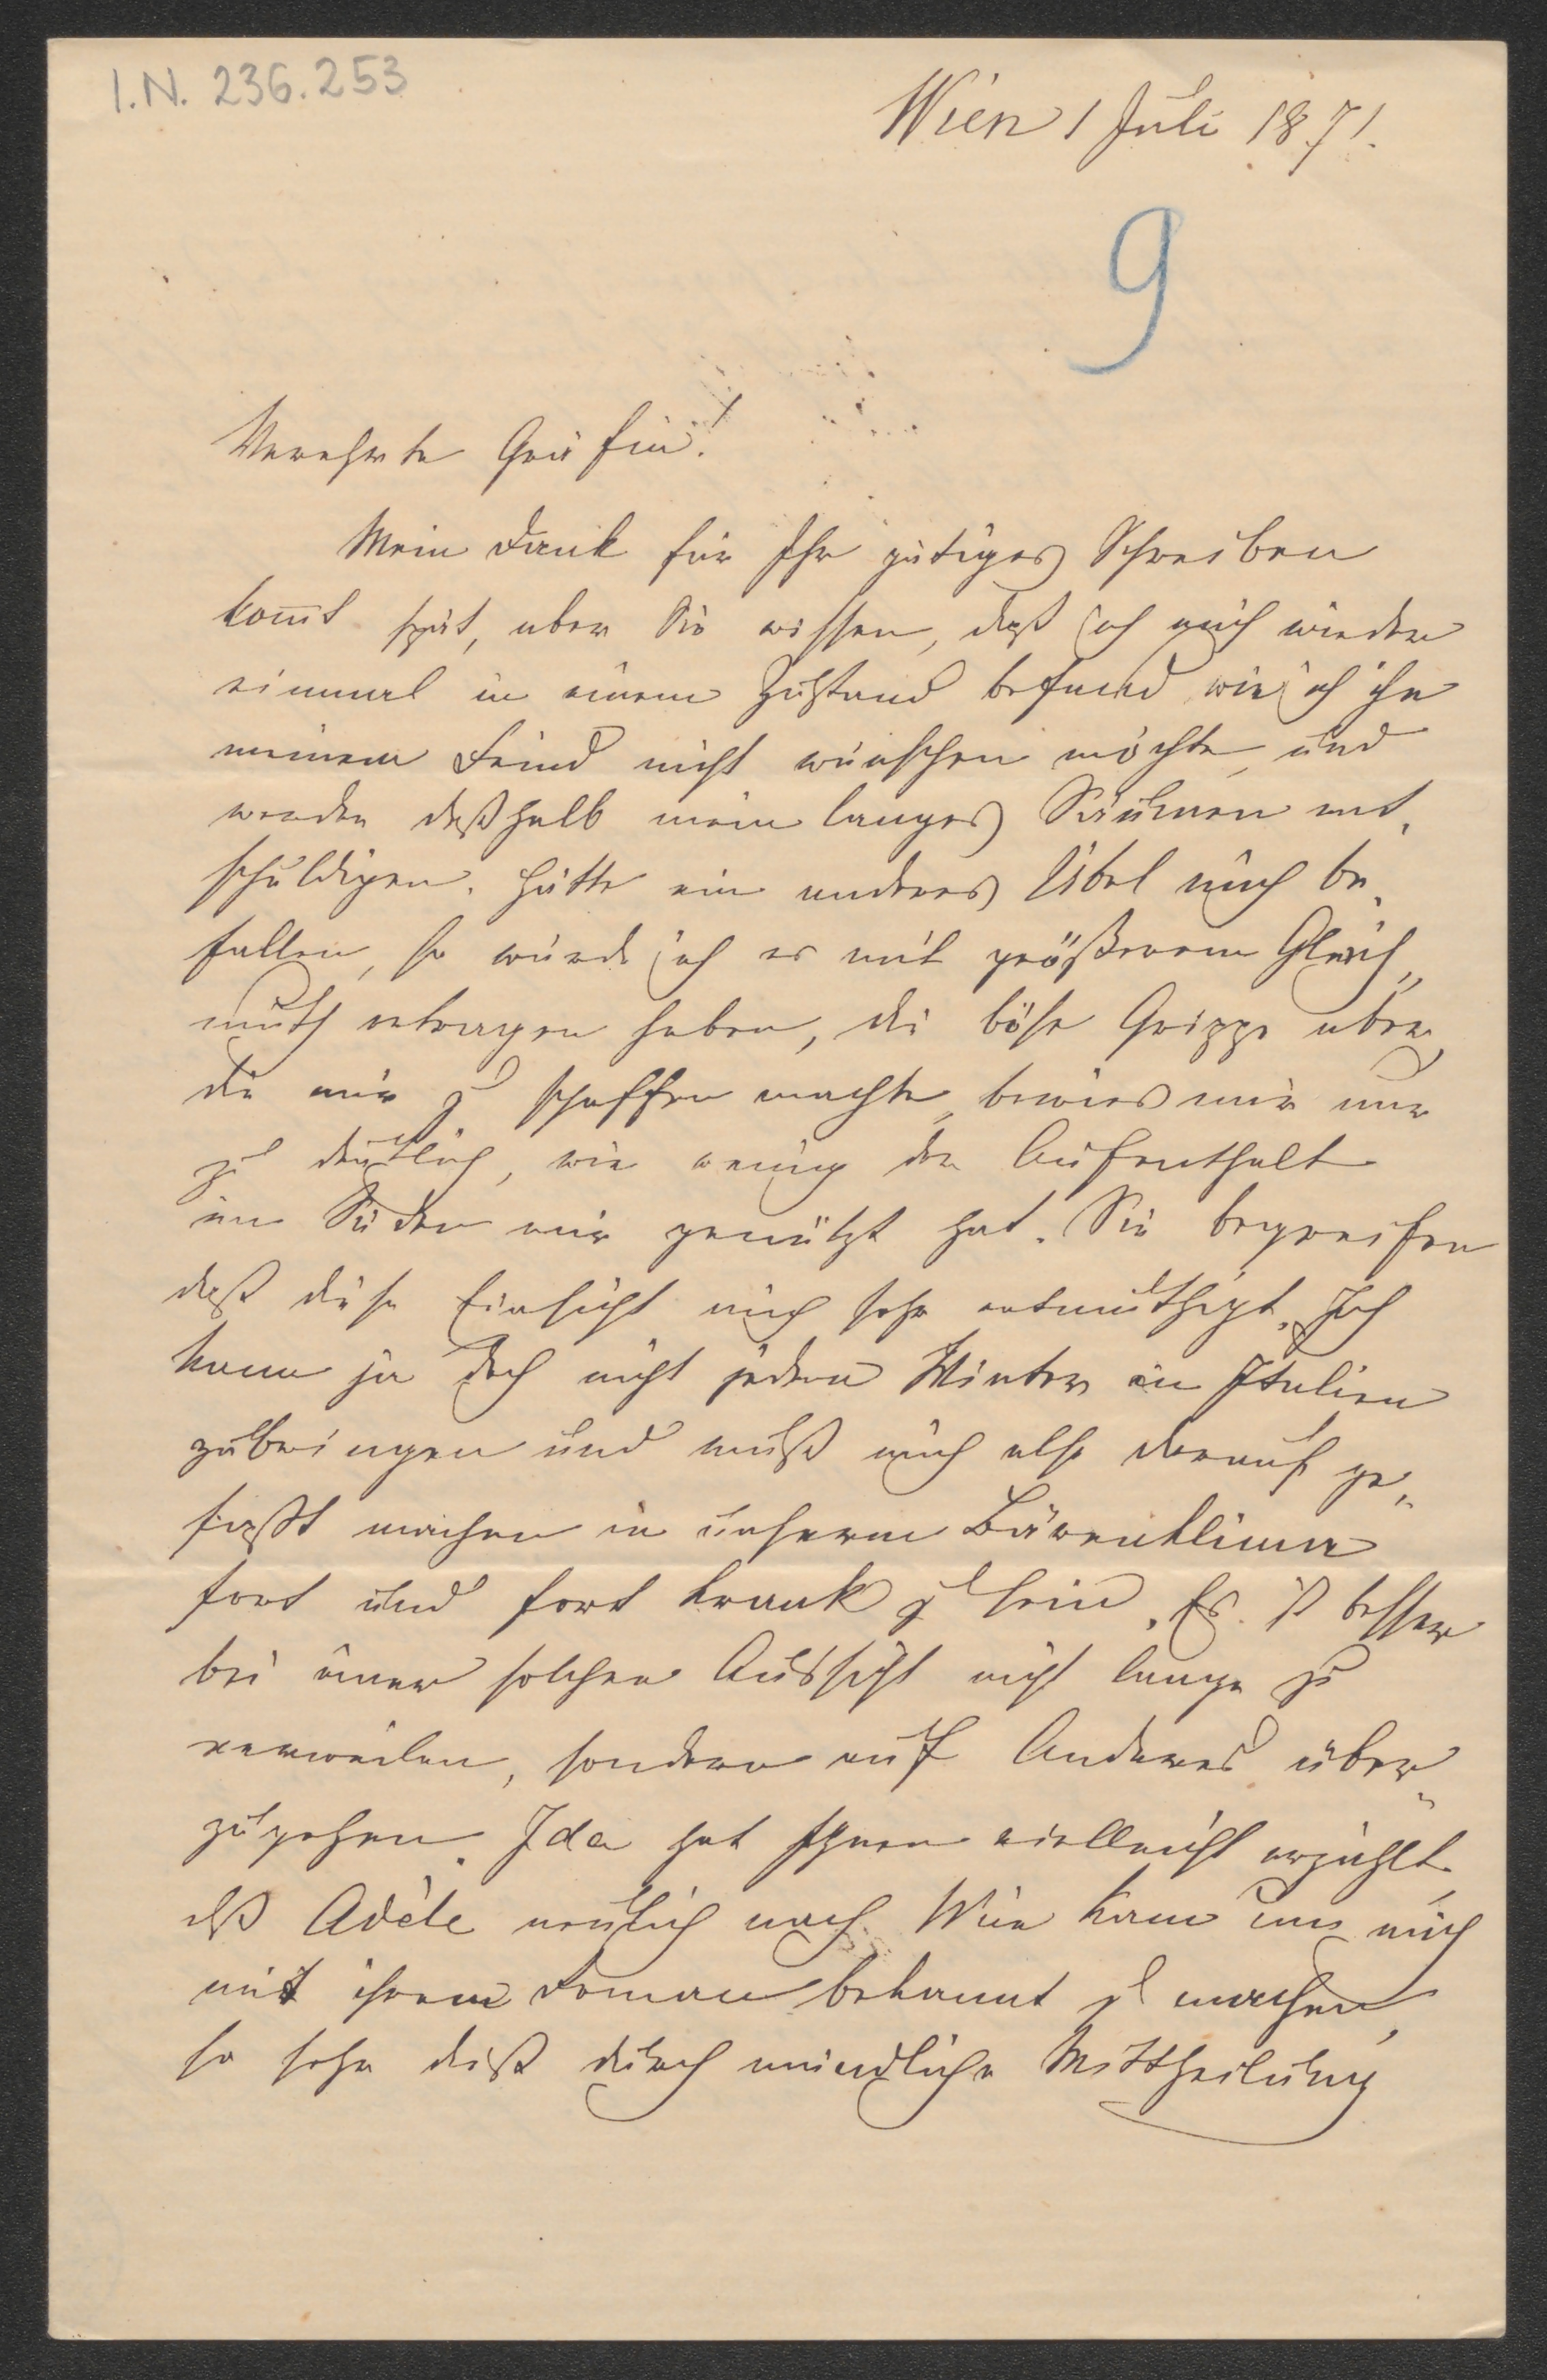 I.N. 236.253
Wien 1 Juli 1871.
9
Verehrte Gräfin!
Mein Dank für Ihr gütiges Schreiben
komt spät, aber Sie wissen, daß ich mich wieder
einmal in einem Zustand befand wie ich ihn
meinem Feind nicht wünschen möchte, und
werden deßhalb mein langes Säumen ent,
schuldigen. Hätte ein anderes Übel mich be,
fallen, so würde ich es mit größerem Gleich„
muth ertragen haben, die böse Grippe aber,
die mir zu schaffen machte, bewies mir nur
zu deutlich, wie wenig der Aufenthalt
im Süden mir genützt hat. Sie begreifen
daß diese Einsicht mich sehr entmuthigt. Ich
kann ja doch nicht jeden Winter in Italien
zubringen und muß mich also darauf ge„
faßt machen in unserm Bärenklima
fort und fort krank zu sein. Es ist besser
bei einer solchen Aussicht nicht lange zu
verweilen, sondern auf Anderes über„
zugehen. Ida hat Ihnen vielleicht erzählt,
dß Adèle neulich nach Wien kam um mich
mit ihrem Roman bekannt zu machen,
so sehr dieß durch mündliche Mittheilung